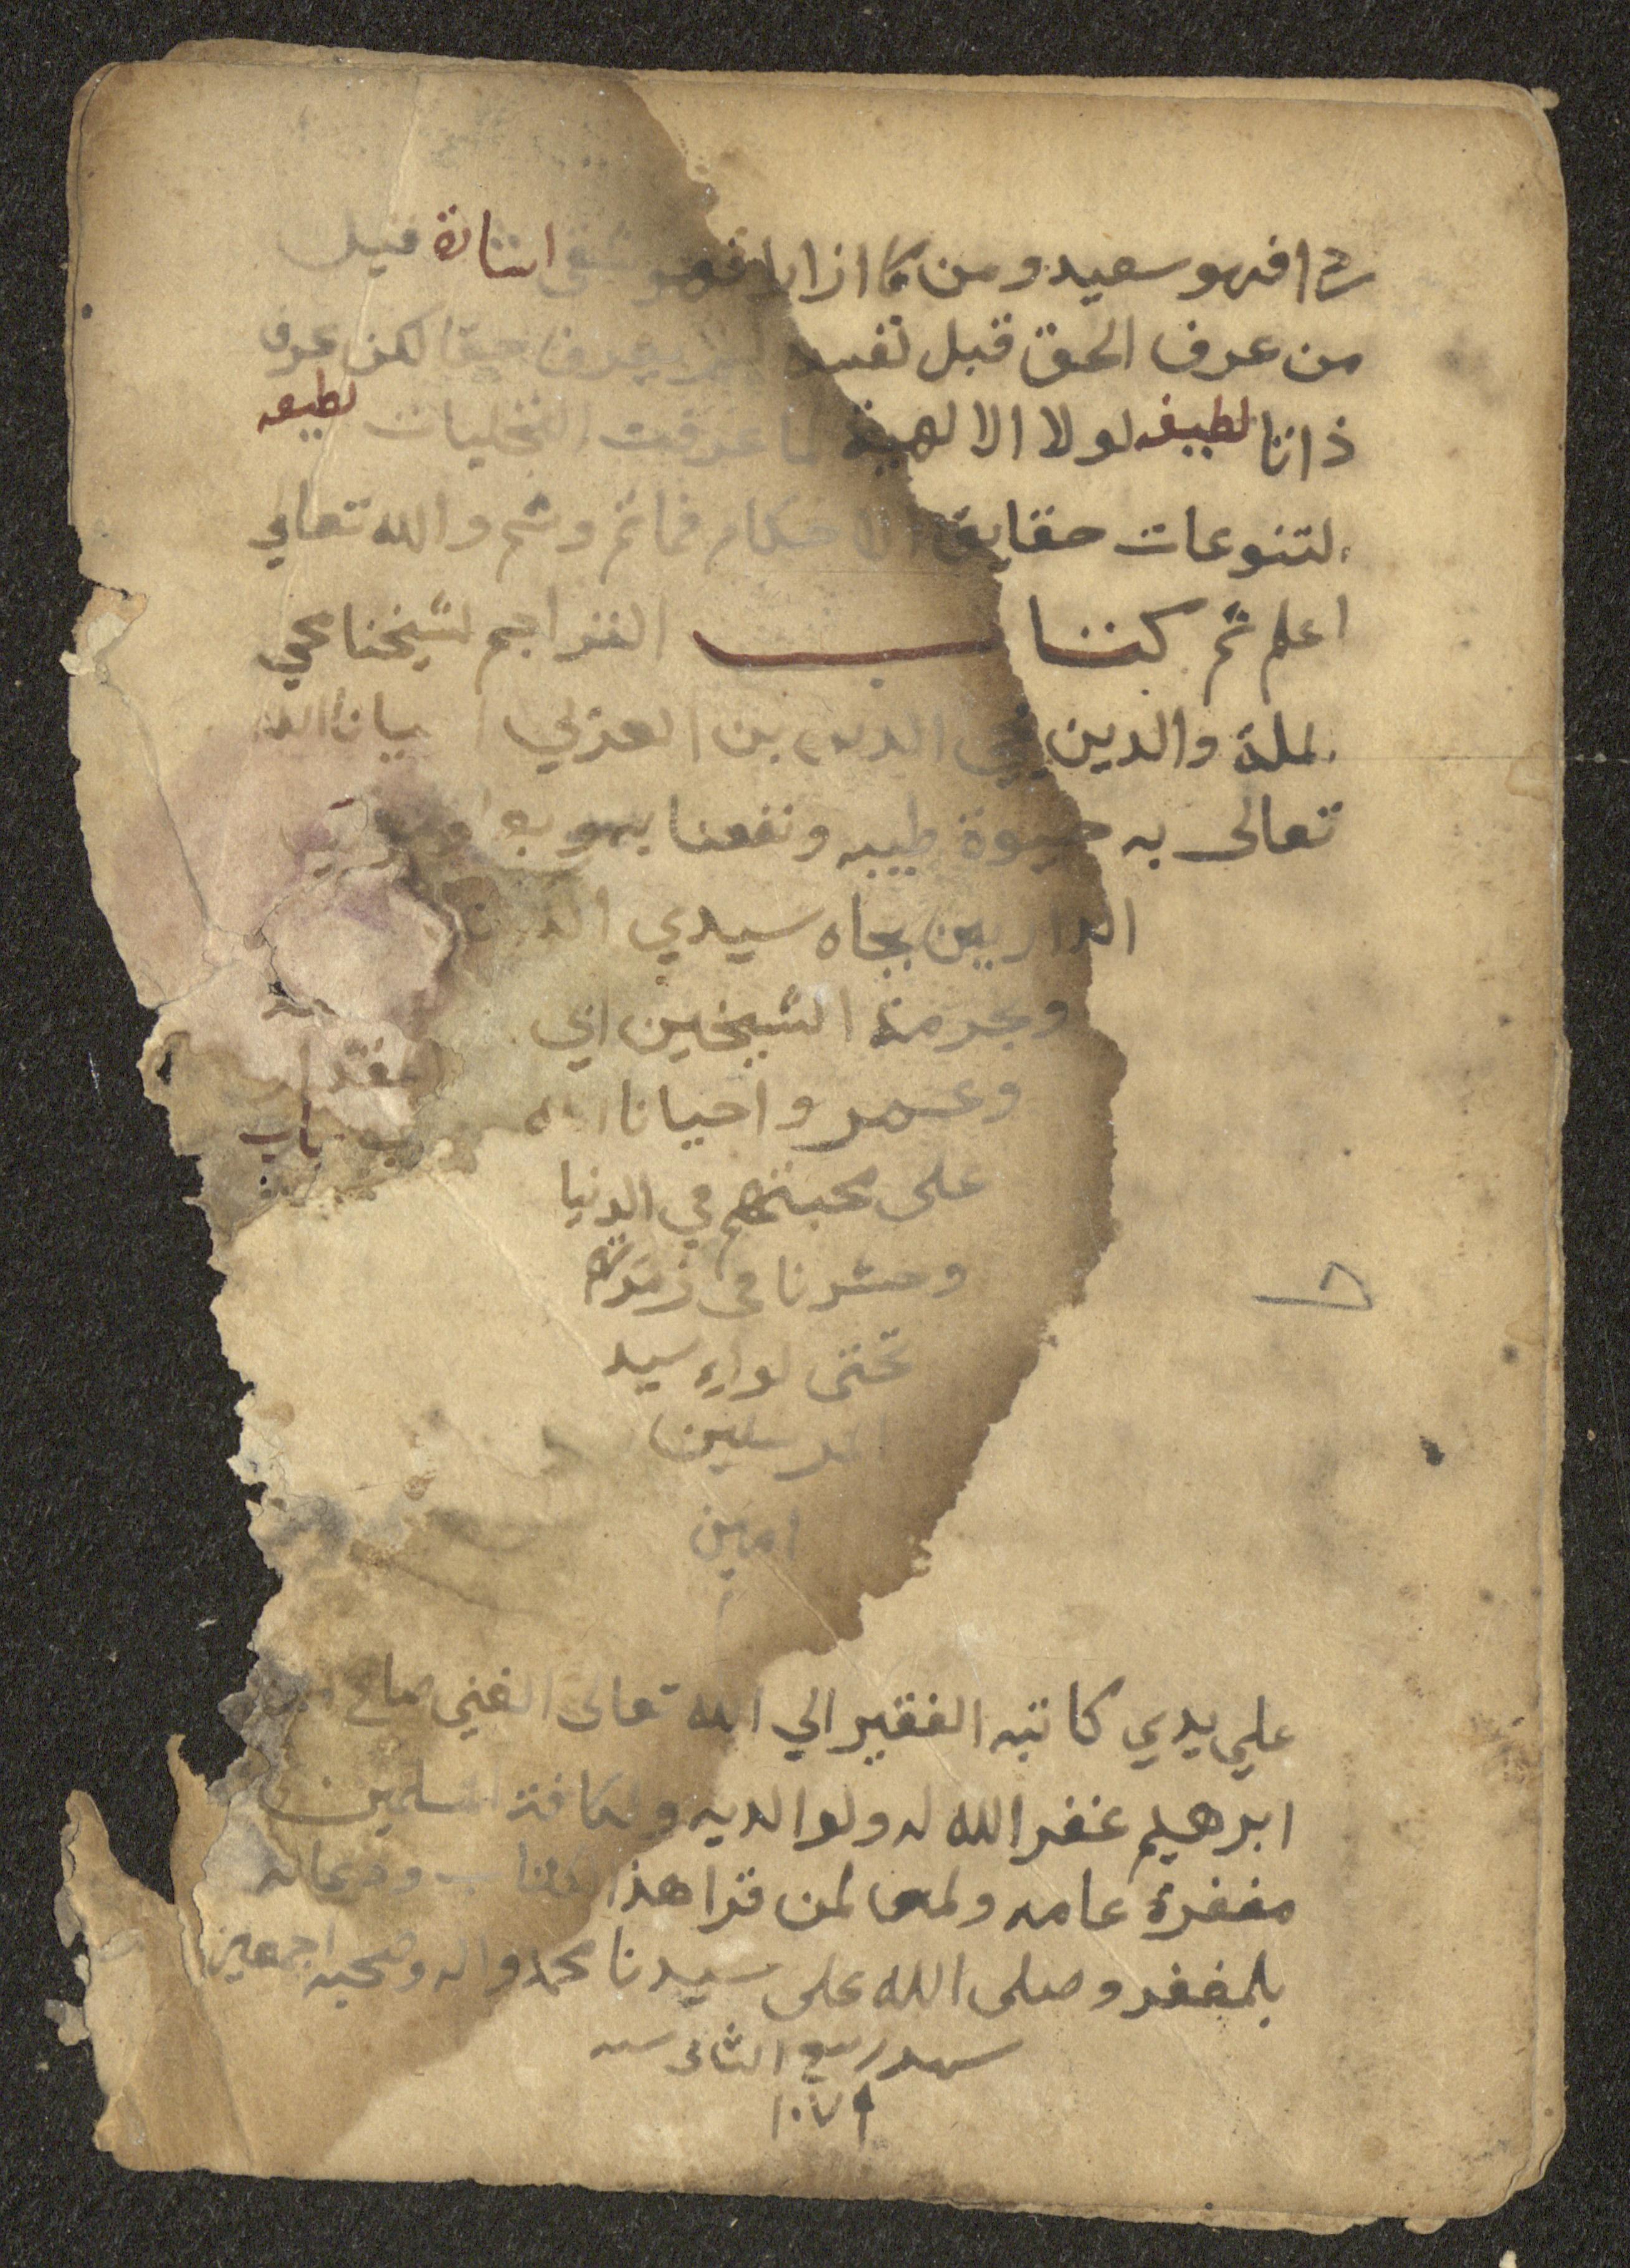 فهو سعيد ومن كان فهو شقي اشارة قيل
من عرف الحق قبل نفسه لم يعرف حقا كمن عرف
ذاتا لطيفه لولا الالهية لما عرفت التجليات لطيفه
لتنوعات حقايق الاحكام فماثم وثم والله تعالي
اعلم ثم كتاب التراجم لشيخنا محي
لملة والدين بن العربي الله
تعالى به حيوة طيبه ونفعنا به
الدارين بجاه سيدي
وبحرمة الشيخين ابي
وعمر واحيانا الله
على محبتهم في الدنيا
وحشرنا في زمرتهم
تحتى لواء سيد
المرسلين
امين
علي يدي كاتبه الفقير الي الله تعالى الغني صالح بن
ابرهيم غفر الله له ولوالديه ولكافة المسلمين
مغفرة عامه لمن قرا هذا الكتاب ودعا له
بلمغفر وصلى الله على سيدنا محمد واله وصحبه اجمعين
شهر ربيع الثانى سنه